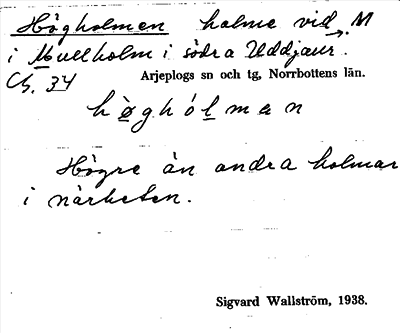 Högholmen holme vid M
i Mullholm i södra Uddjaur.
Ch. 34 Arjeplogs sn och tg, Norrbottens län.
h ø g h ó l m a n
Högre än andra holmar
i närheten.
Sigvard Wallström, 1938.